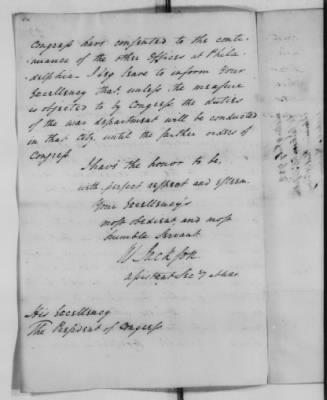 Congress have consented to the conti-
nuance of the other Offices at Phila-
delphia. I beg leave to inform Your
Excellency that, unless the measure
is objected to by Congress the duties
of the war department will be conducted
in that City until the further orders of
Congress.
I have the honor to be,
with perfect respect and esteem
Your Excellency's
most obedient and most
humble Servant
W Jackson
assistant Secy at war
His Excellency
The President of Congress